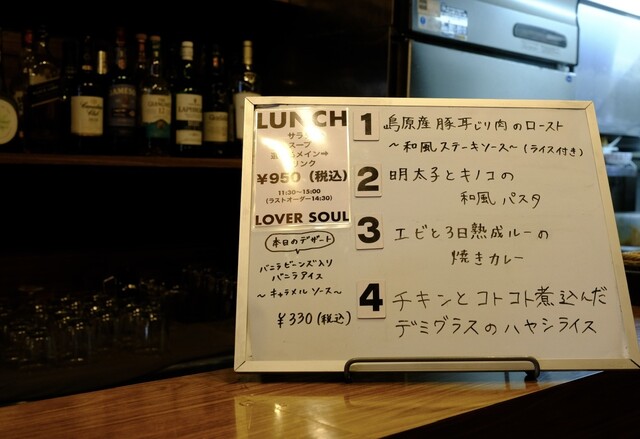 LUNCH
サラダ
スープ
メイン
リンク
¥950 (税込)
11:30〜15:00
(ラストオーダー14:30)
LOVER SOUL
本日のデザート
バニラビーンズ入り
バニラアイス
〜キャラメルソース〜
¥330(税込)
1 島原産 豚耳じり肉のロースト
〜和風ステーキソース〜(ライス付き)
2 明太子とキノコの
和風パスタ
3 エビと3日熟成ルーの
焼きカレー
4 チキンとコトコト煮込んだ
デミグラスのハヤシライス